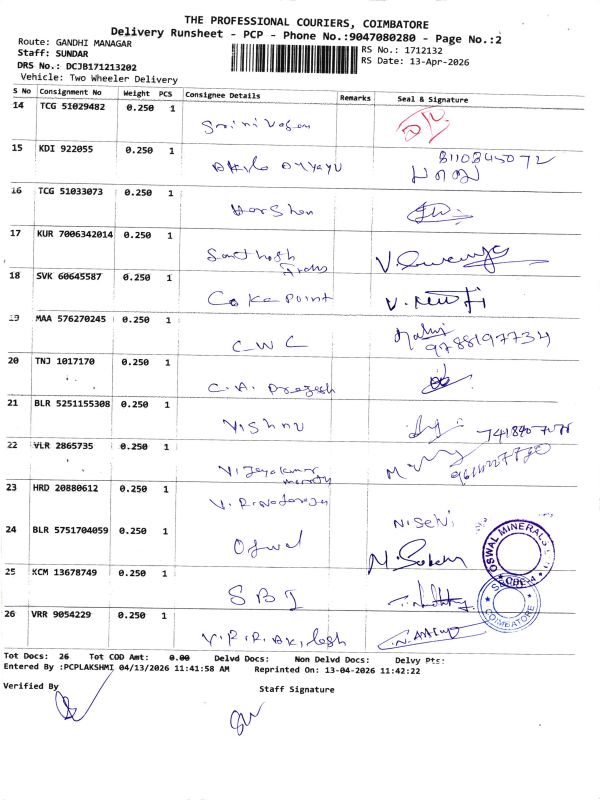 THE PROFESSIONAL COURIERS, COIMBATORE
Delivery Runsheet - PCP - Phone No.:9047080280 - Page No.:2
Route: GANDHI MANAGAR
RS No.: 1712132
Staff: SUNDAR
RS Date: 13-Apr-2026
DRS No.: DCJB171213202
Vehicle: Two Wheeler Delivery
S No Consignment No Weight PCS Consignee Details Remarks Seal & Signature
14 TCG 51029482 0.250 1
Srinivasan
15 KDI 922055 0.250 1
8110845072
16 TCG 51033073 0.250 1
Harshan
17 KUR 7006342014 0.250 1
Santhosh
18 SVK 60645587 0.250 1
Coke Point
19 MAA 576270245 0.250 1
CWC 9788197734
20 TNJ 1017170 0.250 1
C.A. Pragash
21 BLR 5251155308 0.250 1
Vishnu
22 VLR 2865735 0.250 1
Vijayakumar
23 HRD 20880612 0.250 1
N.Selvi
24 BLR 5751704059 0.250 1
Oswal
OSWAL MINERALS
25 KCM 13678749 0.250 1
SBI
COIMBATORE
26 VRR 9054229 0.250 1
V.R.R. Akilesh
Tot Docs: 26 Tot COD Amt: 0.00 Delvd Docs: Non Delvd Docs: Delvy Pts:
Entered By :PCPLAKSHMI 04/13/2026 11:41:58 AM Reprinted On: 13-04-2026 11:42:22
Verified By
Staff Signature